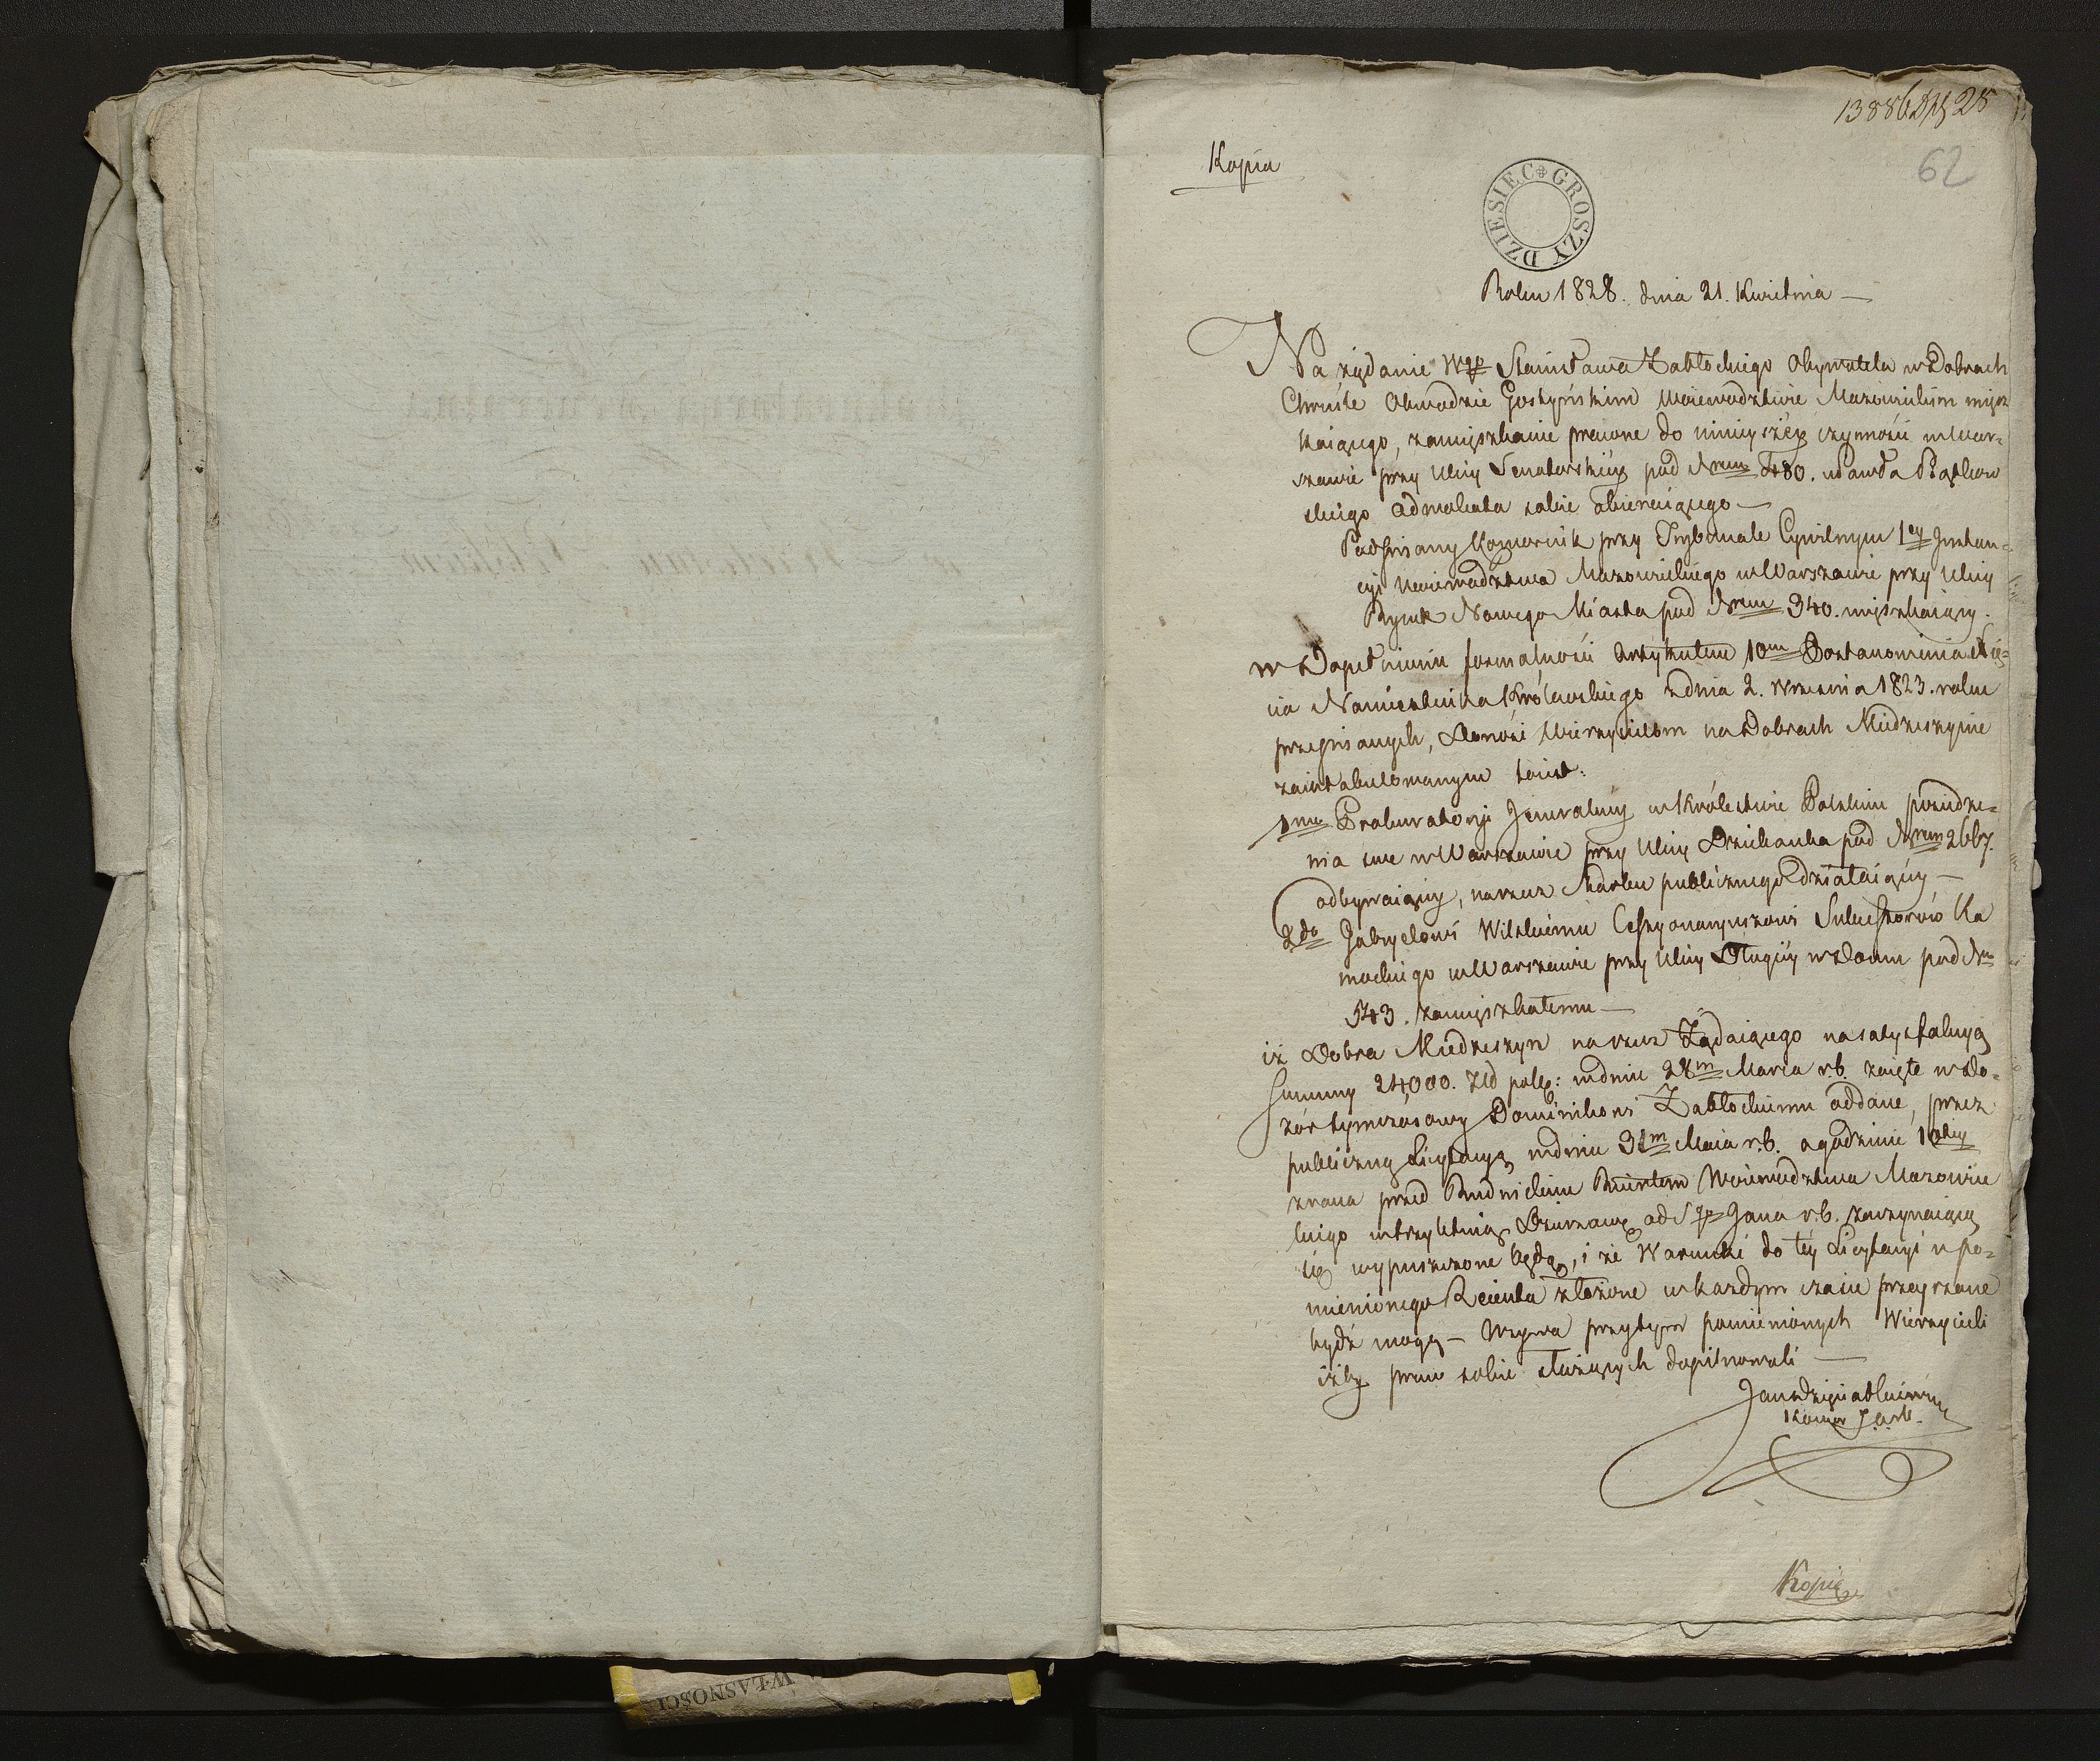 Kopia
62
DZIESIĘC GROSZY
Roku 1828. dnia 21. Kwietnia —
Na żądanie Wgo Stanisława Zabłockiego Obywatela w Dobrach
Chruśle Obwodzie Gostyńskim Woiewodztwie Mazowieckim miesz
kaiącego, zamięszkanie prawne do ninieyszéy czynności w War-
szawie przy Ulicy Senatorskiéy pod Nrem 480. u Pawła Piątkow
skiego Adwokata sobie obieraiącego —
Podpisany Komornik przy Trybunale Cywilnym 1ey Instan-
cyi Woiewodztwa Mazowieckiego w Warszawie przy Ulicy
Rynek Nowego Miasta pod Nrem 340. mięszkaiący.
w Dopełnieniu formalności Artykułem 10m Postanowienia Xię-
cia Namiestnika Królewskiego z dnia 2. Września 1823. roku
przepisanych, Donosi Wierzycielom na Dobrach Miedzeszynie
zaintabulowanym to iest:
1mo Prokuratoryi Jeneralney w Królestwie Polskim posiedze-
nia swe w Warszawie przy Ulicy Dziekanka pod Nrem 2667.
odbywaiącéy, na rzecz Skarbu publicznego działaiącéy —
2do Gabryelowi Wilskiemu Cessyonaryuszowi Sukcessorów Ka
mockiego w Warszawie przy Ulicy Długiéy w Domu pod Nrm
543. zamięszkałemu —
iż Dobra Miedzeszyn na rzecz Żądaiącego na satysfakcyą
Summy 24,000. Złł polsk: w dniu 28m Marca r.b. zaięte w do-
zór tymczasowy Dominikowi Zabłockiemu oddane, przez
publiczną Licytacyą w dniu 31m Maia r.b. o godzinie 10tey
zrana przed Rudnickim Reientem Woiewodztwa Mazowiec
kiego w trzyletnią Dzierzawę od S go Jana r.b. zaczynaiącą
się wypuszczone będą, i że Warunki do téy Licytacyi u po-
mienionego Reienta złożone w każdym czasie przeyrzane
bydź mogą — Wzywa przytym pomienionych Wierzycieli
iżby praw sobie służących dopilnowali —
Kopia
WŁASNOŚCI